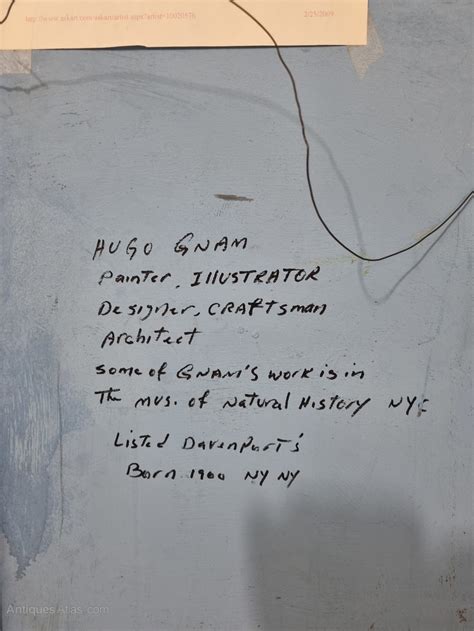 http://www.askart.com/askart/artist.aspx?artist=10020576 2/25/2009
HUGO GNAM
Painter, ILLUSTRATOR
Designer, CRAftsman
Architect
some of GNAM'S work is in
The mus. of Natural History NYC
Listed Davenport's
Born 1900 NY NY
AntiquesAtlas.com